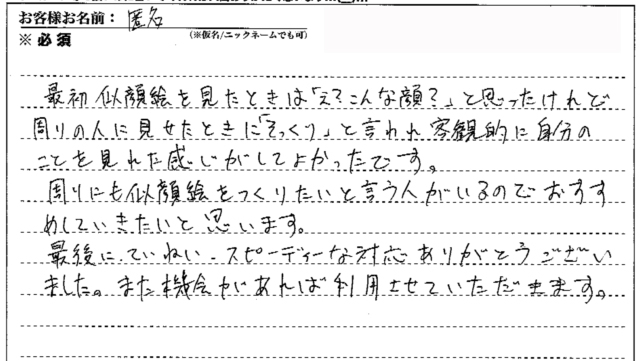 お客様お名前： 匿名
※必須
(※仮名/ニックネームでも可)
最初似顔絵を見たときは「え？こんな顔？」と思ったけれど
周りの人に見せたときに「そっくり」と言われ客観的に自分の
ことを見れた感じがしてよかったです。
周りにも似顔絵をつくりたいと言う人がいるのでおすす
めしていきたいと思います。
最後に、ていねい、スピーディーな対応ありがとうござい
ました。また機会があれば利用させていただきます。